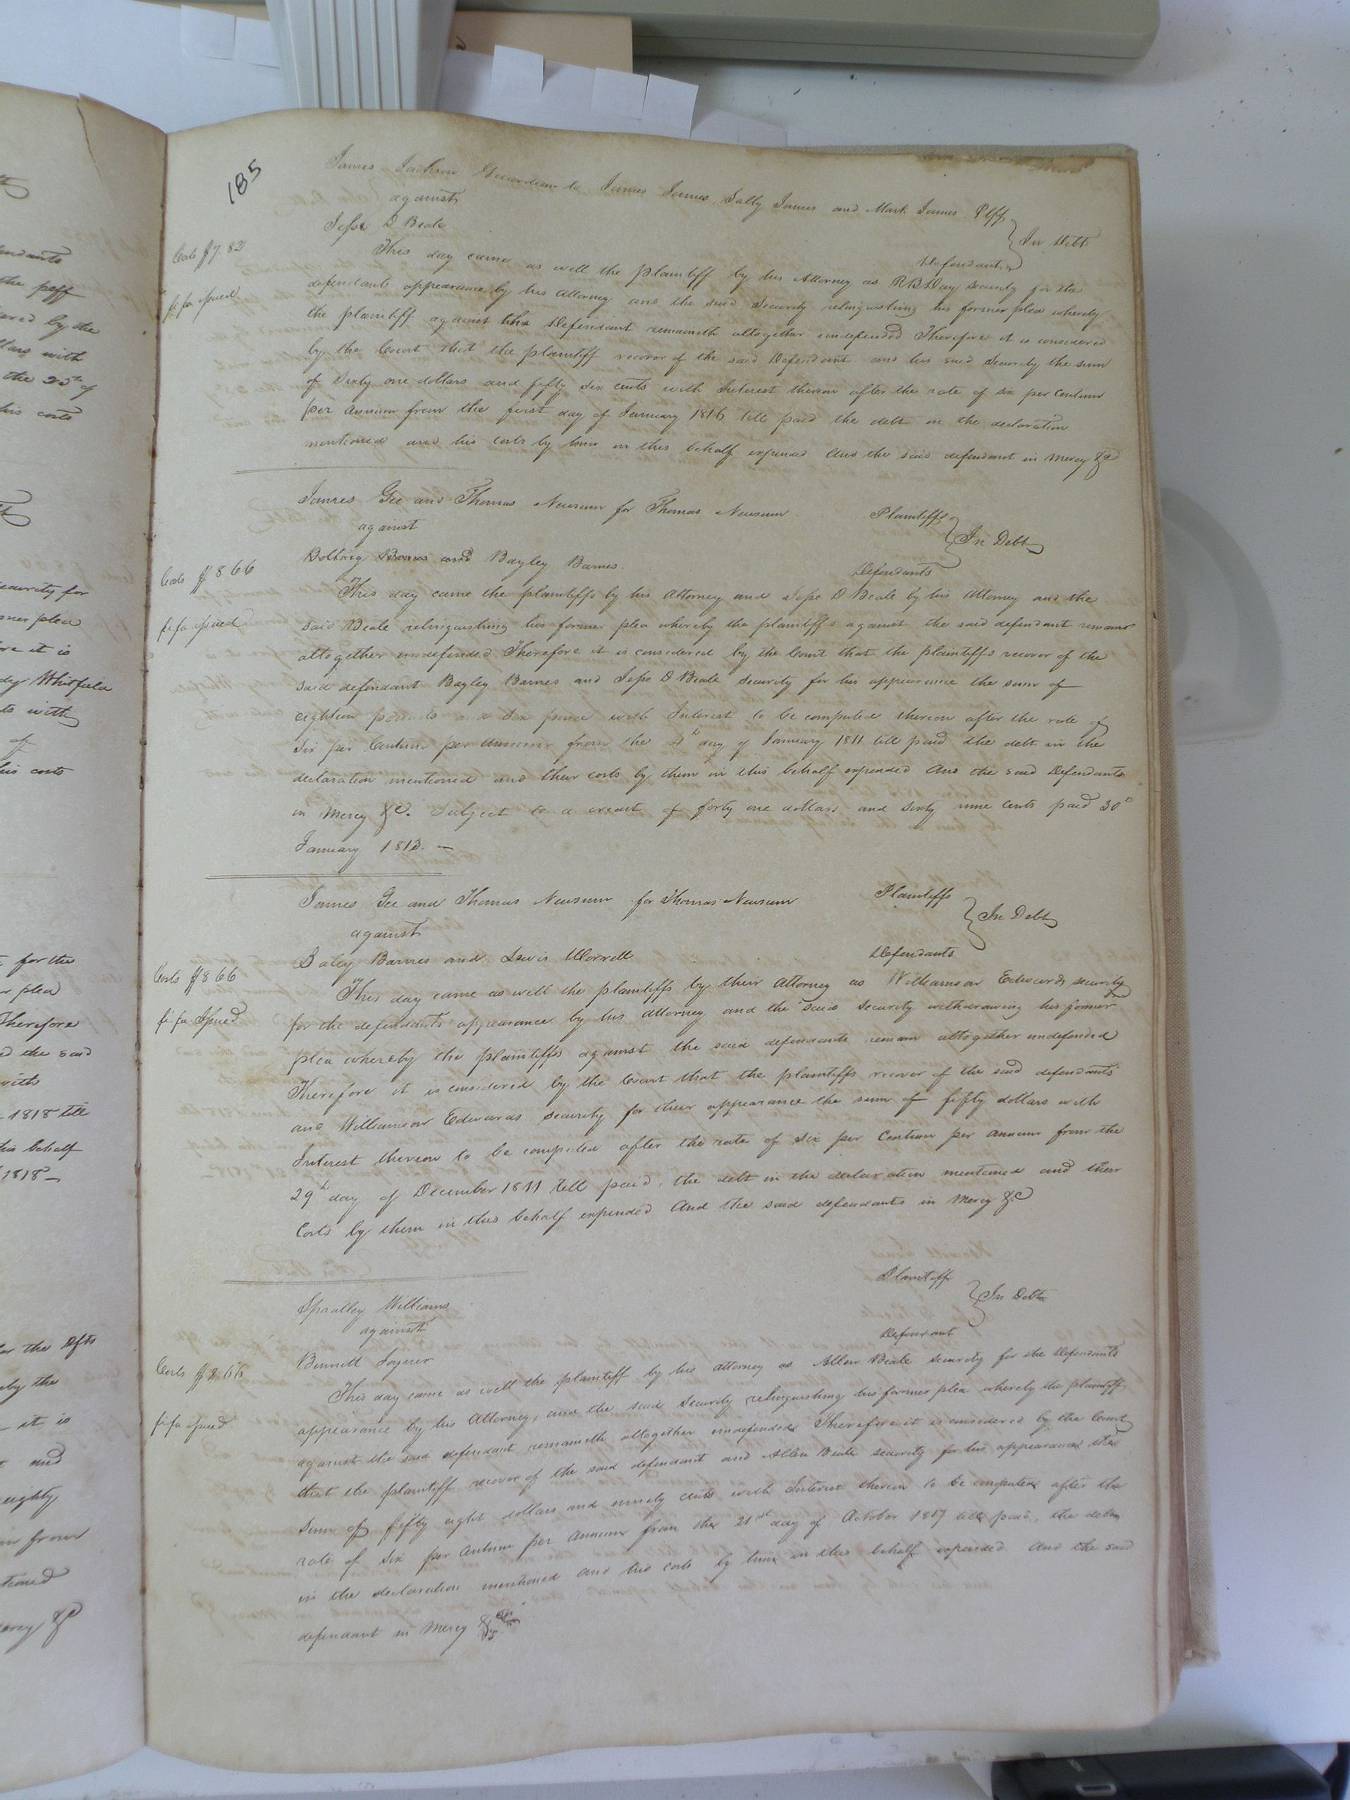 185
James Jackson Guardian to James James, Sally James and Mark James Plff
against
In Debt
Jesse D Beale
Defendant
Costs $7 83
fi fa issued
This day came as well the plaintiff by his Attorney as R B Day security for the
defendants appearance by his Attorney and the said Security relinquishing his former plea whereby
the plaintiff against the Defendant remaineth altogether undefended Therefore it is considered
by the Court that the plaintiff recover of the said Defendant and his said Security the sum
of Sixty one dollars and fifty six cents with Interest thereon after the rate of six per Centum
per annum from the first day of January 1816 till paid the debt in the declaration
mentioned and his costs by him in this behalf expended And the said defendant in Mercy &c
James Gee and Thomas Newsum for Thomas Newsum Plaintiffs
against
In Debt
Bolling Barnes and Bayley Barnes Defendants
Costs $8 66
fi fa issued
This day came the plaintiffs by his Attorney and Jesse D Beale by his Attorney and the
said Beale relinquishing his former plea whereby the plaintiffs against the said defendant remains
altogether undefended Therefore it is considered by the Court that the plaintiffs recover of the
said defendant Bayley Barnes and Jesse D Beale security for his appearance the sum of
eighteen pounds six pence with Interest to be computed thereon after the rate of
six per Centum per Annum from the 4th day of January 1811 till paid the debt in the
declaration mentioned and their costs by them in this behalf expended And the said Defendants
in Mercy &c. Subject to a credit of forty one dollars and sixty nine cents paid 30th
January 1813. —
James Gee and Thomas Newsum for Thomas Newsum Plaintiffs
against
In Debt
Baley Barnes and Lewis Worrell Defendants
Costs $8 66
fi fa Issued
This day came as well the plaintiffs by their Attorney as Williamson Edwards security
for the defendants appearance by his Attorney and the said Security withdrawing his former
plea whereby the plaintiffs against the said defendants remain altogether undefended
Therefore it is considered by the Court that the plaintiffs recover of the said defendants
and Williamson Edwards security for their appearance the sum of fifty dollars with
Interest thereon to be computed after the rate of six per Centum per annum from the
29th day of December 1811 till paid, the debt in the declaration mentioned and their
Costs by them in this behalf expended And the said defendants in Mercy &c
Plaintiff
Spratley Williams
against
In Debt
Defendant
Bennett Joyner
Costs $8.66
fi fa issued
This day came as well the plaintiff by his attorney as Allen Beale security for the Defendants
appearance by his Attorney, and the said Security relinquishing his former plea whereby the plaintiff
against the said defendant remaineth altogether undefended Therefore it is considered by the Court
that the plaintiff recover of the said defendant and Allen Beale security for his appearance the
sum of fifty eight dollars and ninety cents with Interest thereon to be computed after the
rate of six per Centum per Annum from the 21st day of October 1817 till paid, the debt
in the declaration mentioned and his costs by him in this behalf expended And the said
defendant in Mercy &c